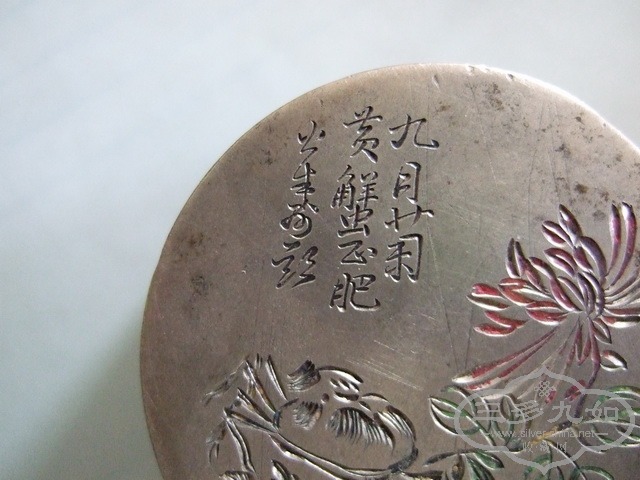 九月菊
黄蟹正肥
三多九如
www.silver-china.net